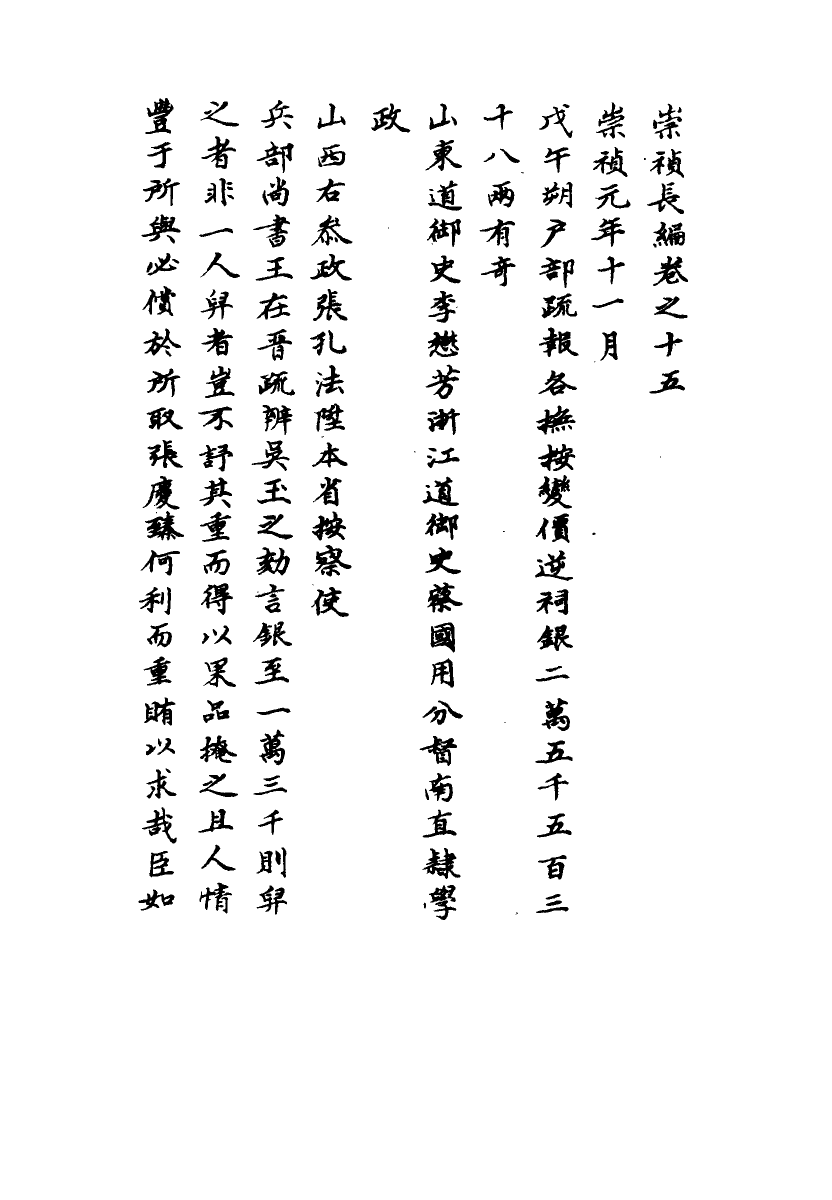 崇禎長編卷之十五
崇禎元年十一月
戊午朔户部疏報各撫按變價逆祠銀二萬五千五百三
十八兩有奇
山東道御史李懋芳浙江道御史蔡國用分督南直隸學
政
山西右叅政張孔法陞本省按察使
兵部尚書王在晋疏辨吳玉之劾言銀至一萬三千則舁
之者非一人舁者豈不訝其重而得以果品掩之且人情
豐于所與必償於所取張慶臻何利而重賄以求哉臣如